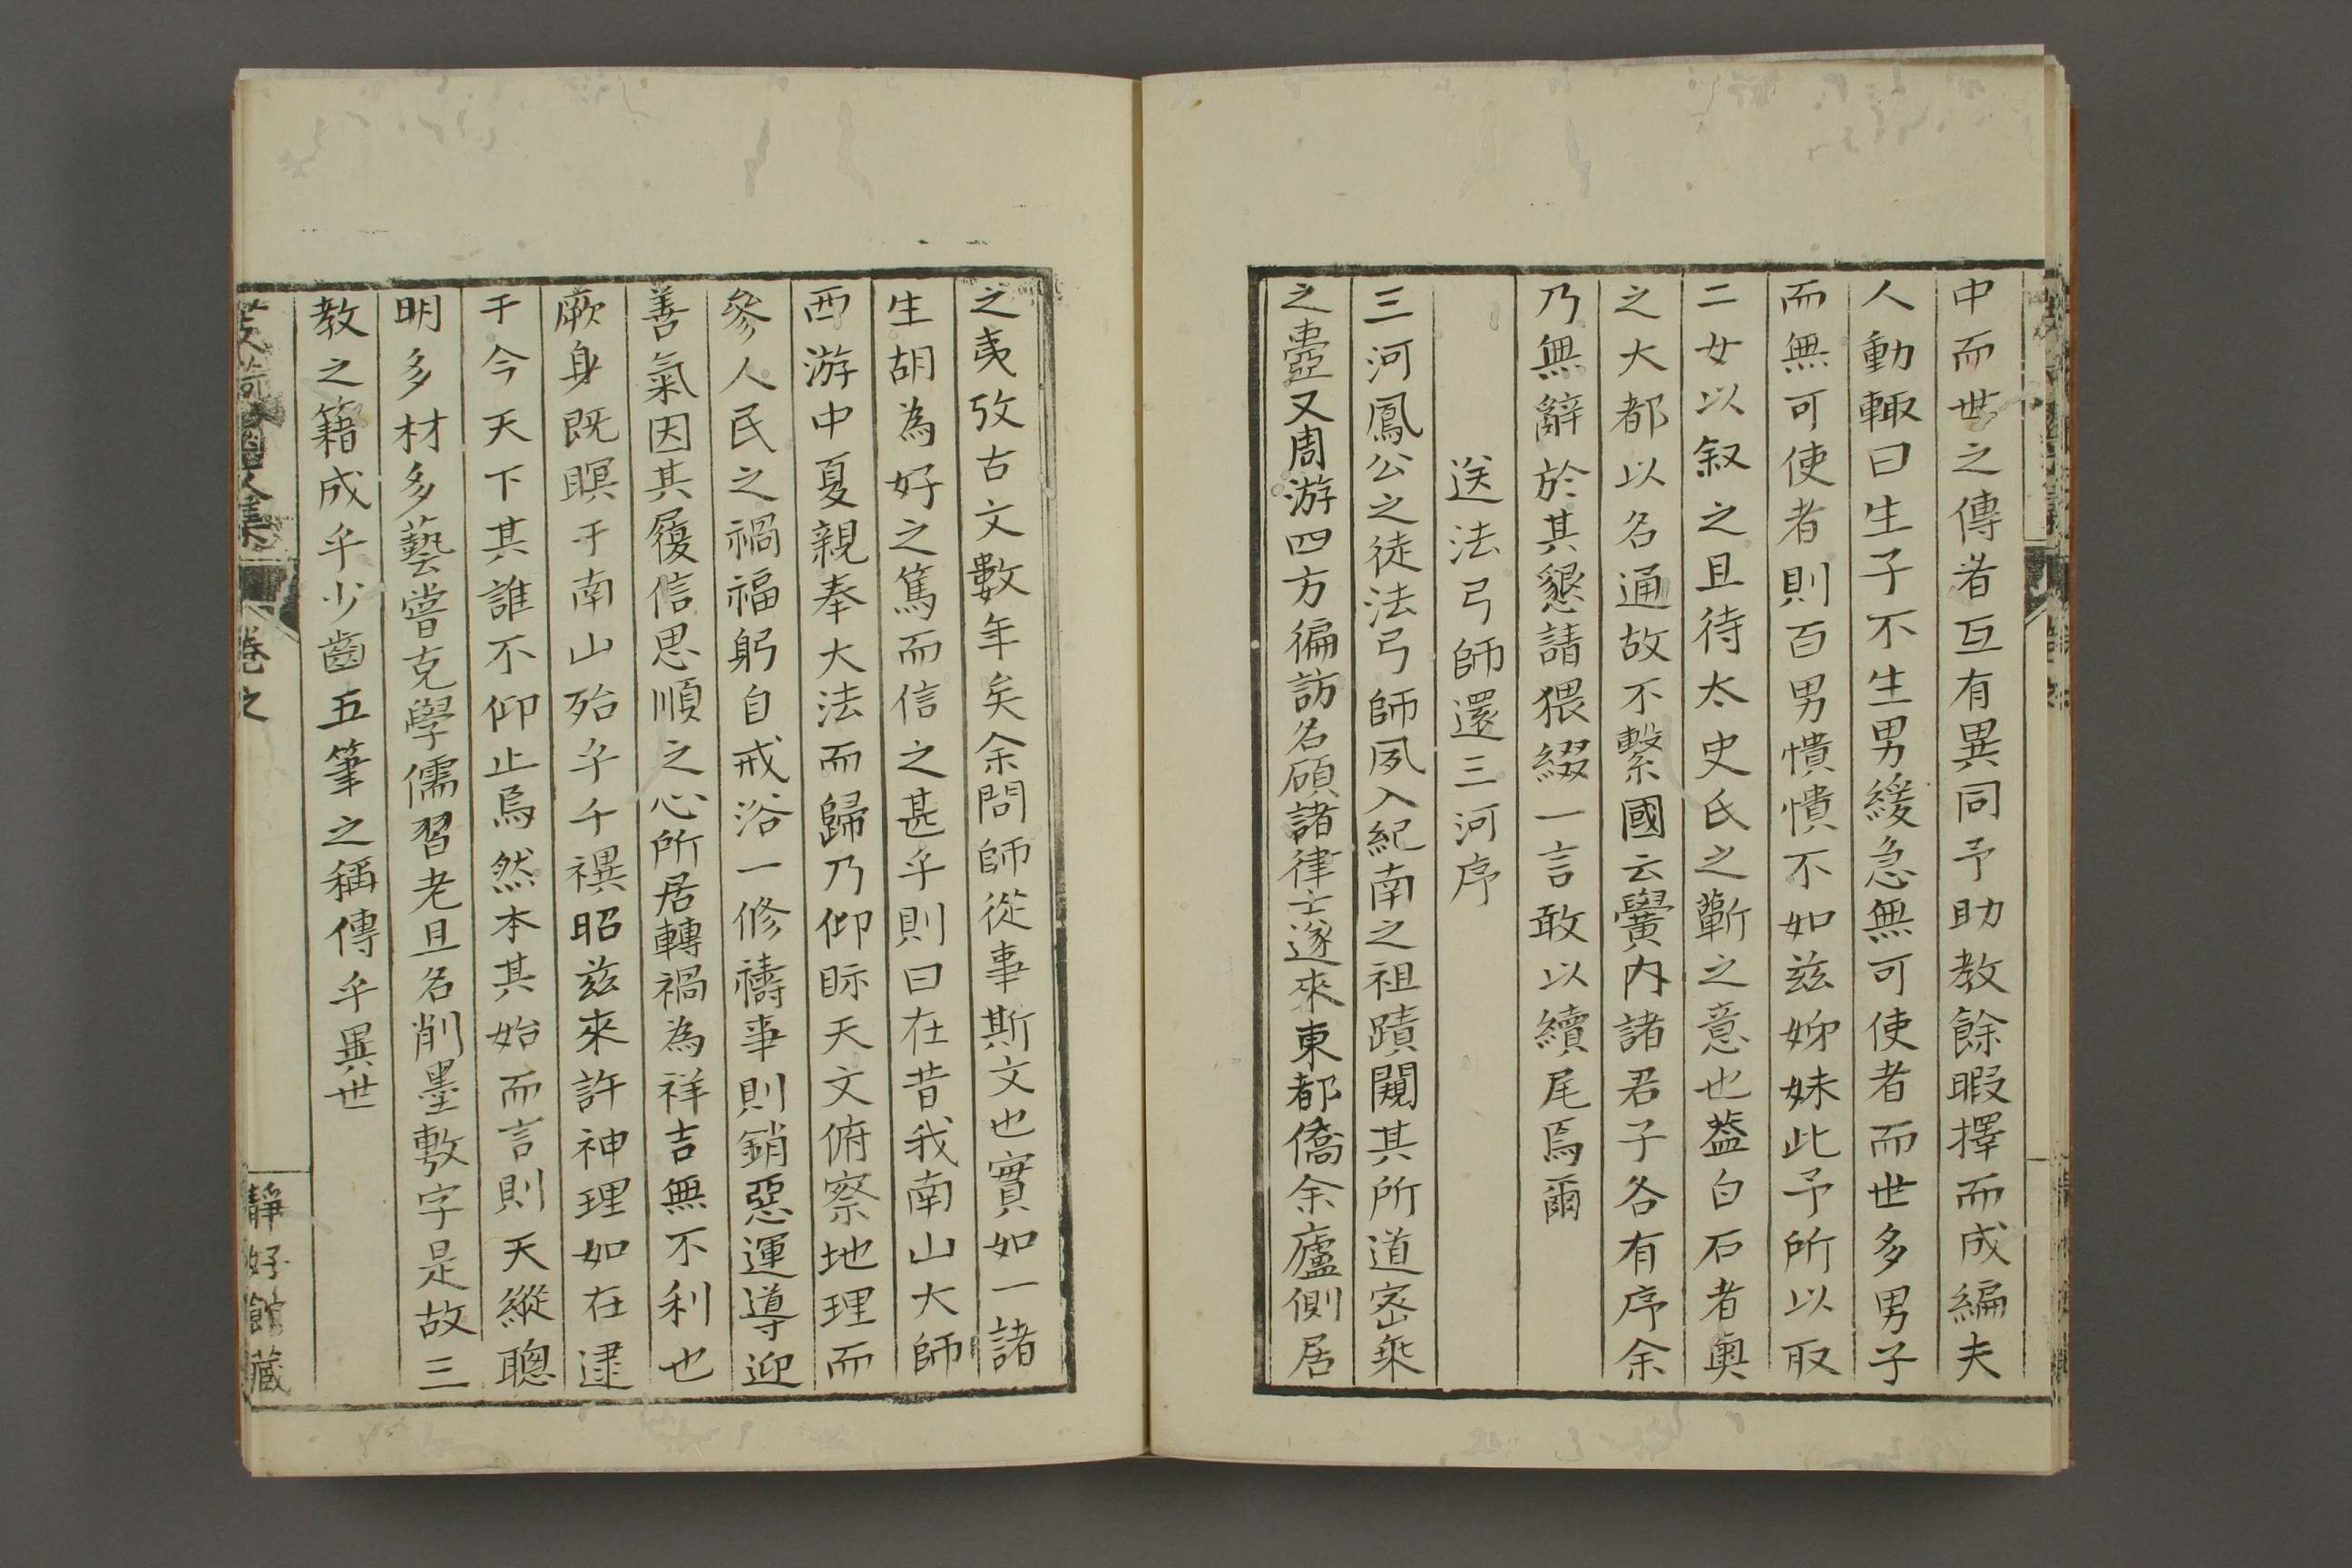 中而世之傳者互有異同予助教餘暇擇而成編夫
人動輙曰生子不生男緩急無可使者而世多男子
而無可使者則百男憒憒不如兹姊妹此予所以取
二女以叙之且待太史氏之蘄之意也葢白石者輿
之大都以名通故不繫國云黌内諸君子各有序余
乃無辭於其懇請猥綴一言敢以續尾焉爾
送法弓師還三河序
三河鳳公之徒法弓師夙入紀南之祖蹟闚其所道密乘
之壼又周游四方徧訪名碩諸律士遂來東都僑余廬側居
之夷攷古文數年矣余問師從事斯文也實如一諸
生胡為好之篤而信之甚乎則曰在昔我南山大師
西游中夏親奉大法而歸乃仰眎天文俯察地理而
參人民之禍福躬自戒浴一修禱事則銷惡運導迎
善氣因其履信思順之心所居轉禍為祥吉無不利也
厥身既瞑于南山殆乎千禩昭兹來許神理如在逮
于今天下其誰不仰止焉然本其始而言則天縱聰
明多材多藝嘗克學儒習老且名削墨敷字是故三
教之籍成乎少齒五筆之稱傳乎異世
卷之
靜好館藏